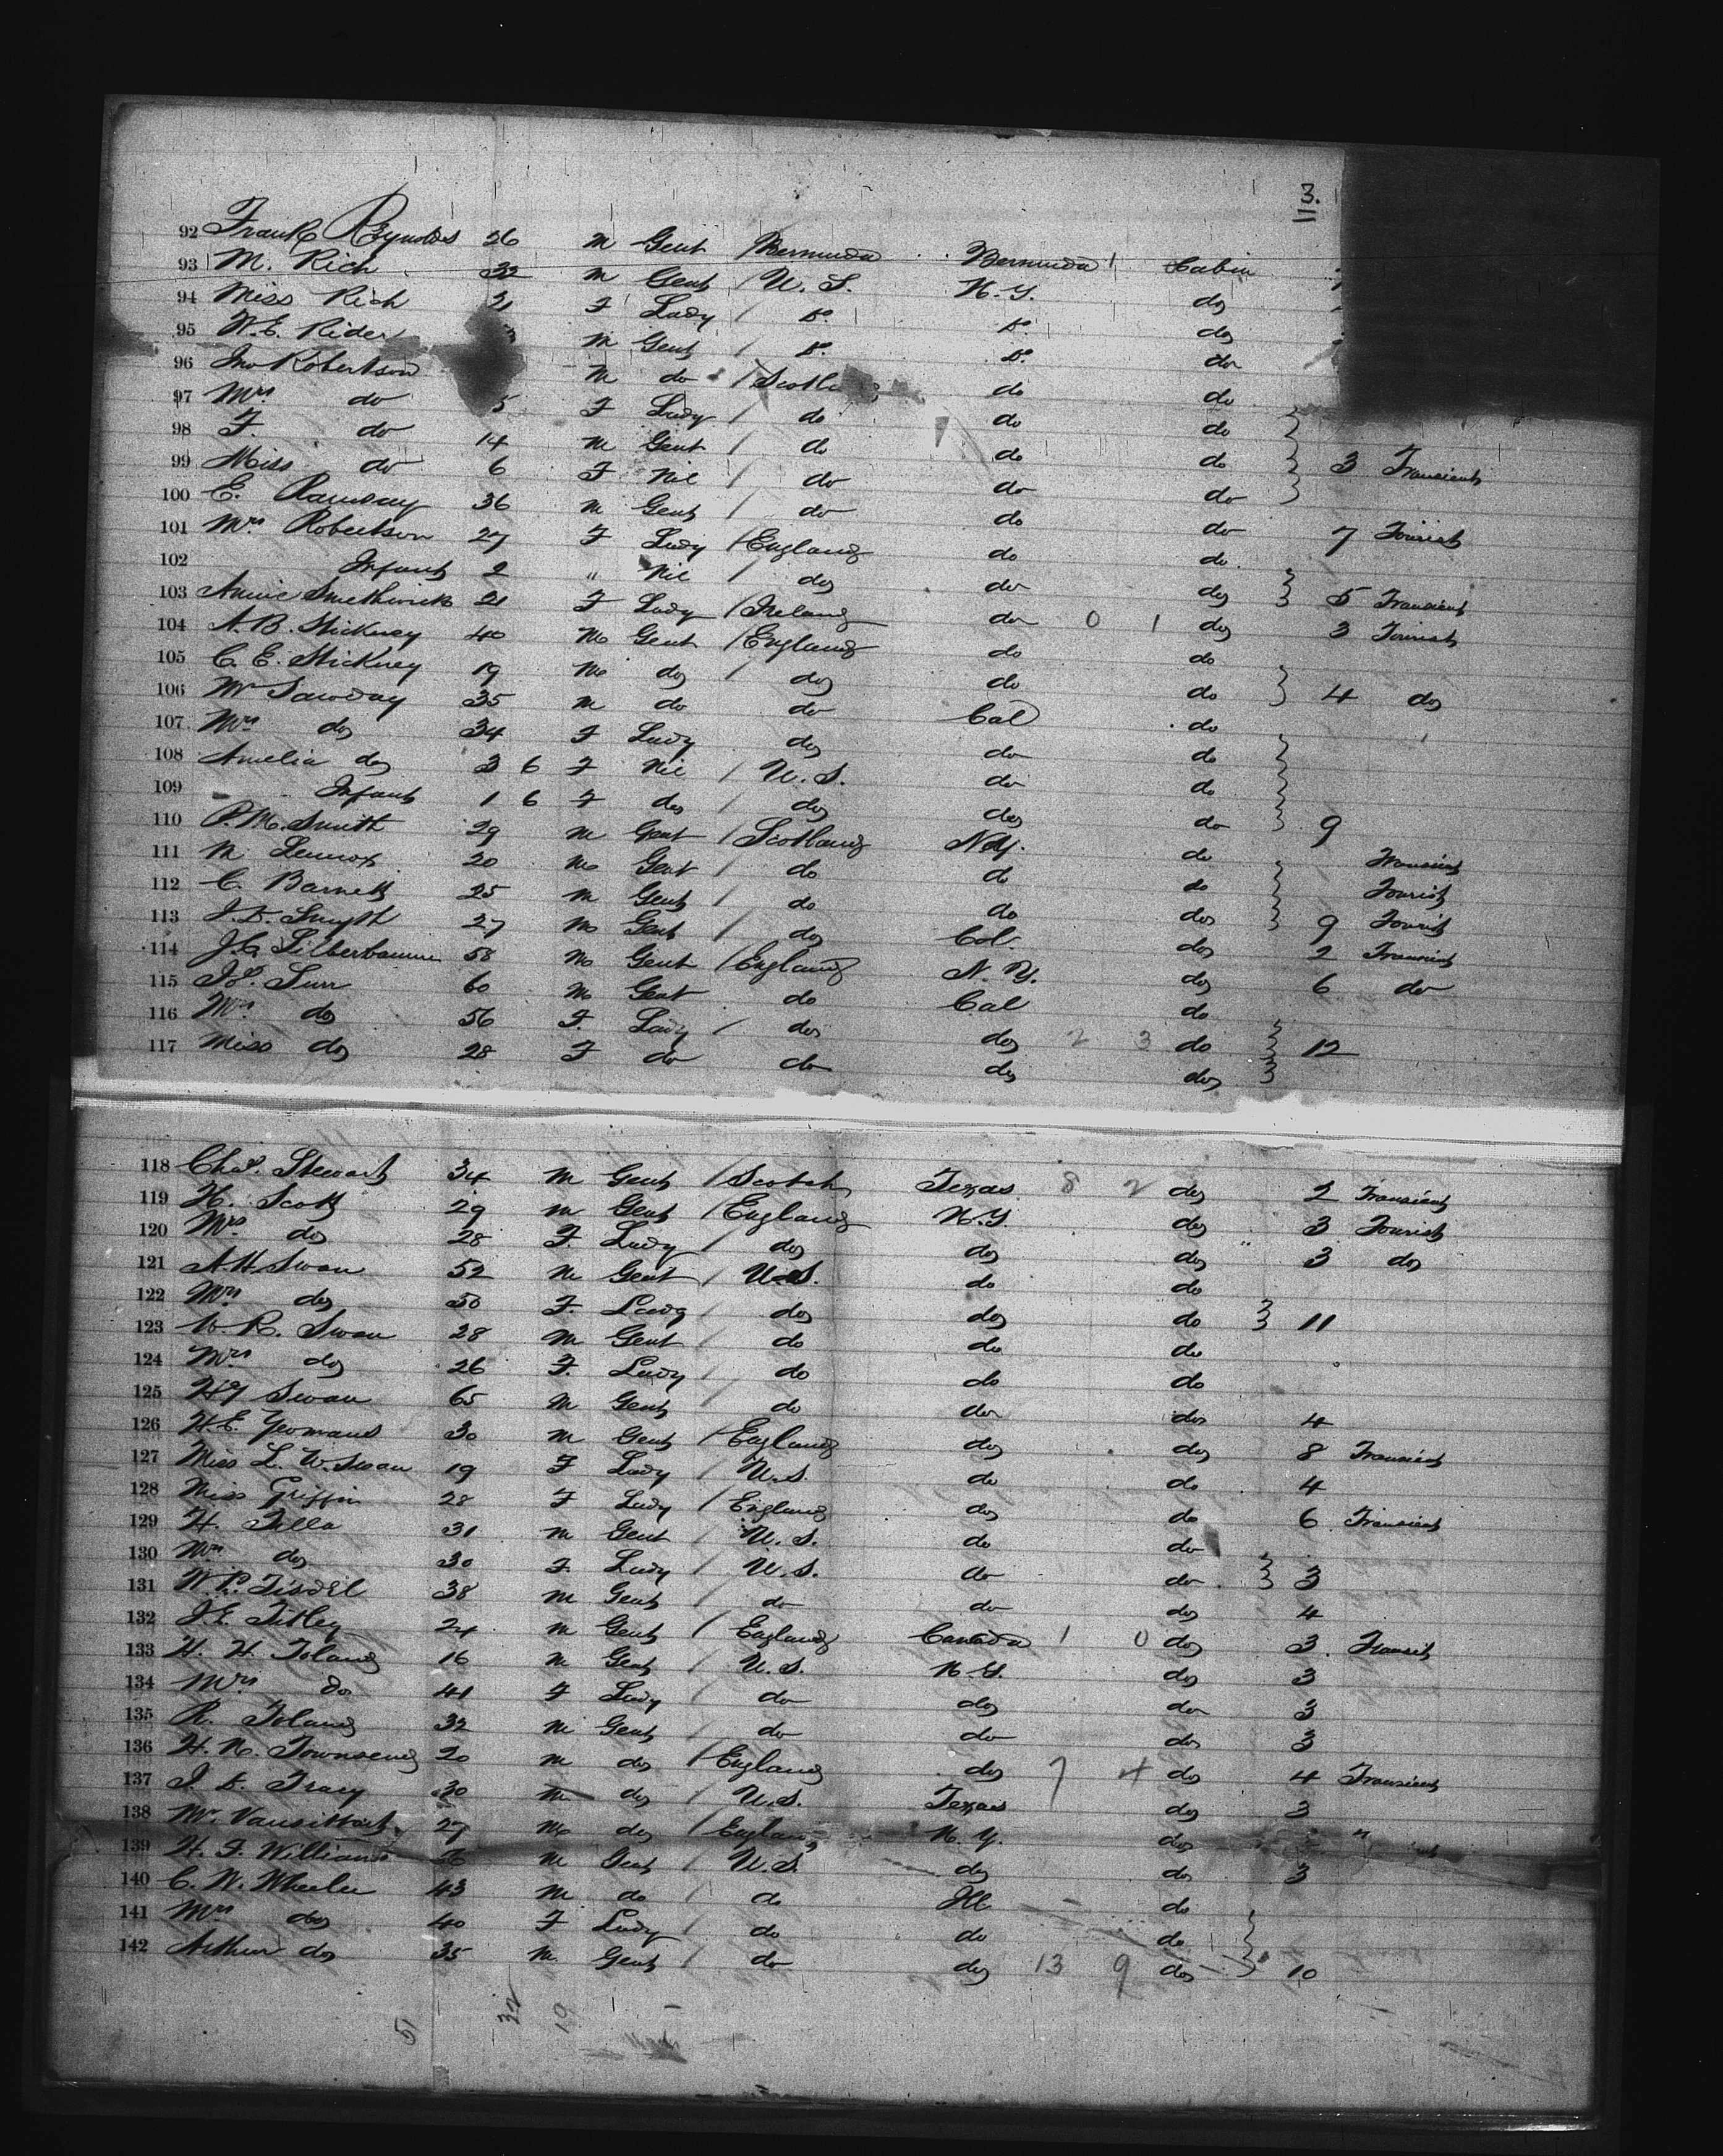 3.
92 Frank Reynolds 26 M Gent / Bermuda Bermuda Cabin
93 M. Rich 32 M Gent / U. S. N. Y. do
94 Miss Rich 21 F Lady / Do. Do. do
95 W. E. Rider M Gent / Do. Do. do
96 Jno Robertson M do / do do
97 Mrs do 5 F Lady / do do do
98 F. do 14 M Gent / do do do 3 Transient
99 Miss do 6 F Nil / do do do
100 E. Ramsay 36 M Gent / do do do 7 Tourist
101 Mrs Robertson 27 F Lady / England do do
102 Infant 2 " Nil / do do do 5 Transient
103 Annie Smethwick 21 F Lady / Ireland do 0 1 do 3 Tourist
104 A. B. Stickney 40 M Gent / England do do
105 C. E. Stickney 19 M do / do do do 4 do
106 Mr Sawday 35 M do do Cal do
107 Mrs do 34 F Lady do do do
108 Amelia do 3 6 F Nil / U. S. do do
109 Infant 1 6 F do / do do do 9
110 P. M. Smith 29 M Gent / Scotland N.Y. do Transient
111 M Lennox 20 M Gent / do do do Tourist
112 C. Barnett 25 M Gent / do do do 9 Tourist
113 J. D. Smyth 27 M Gent / do Col. do 2 Transient
114 J. C. Silberbauer 58 M Gent / England N. Y. do 6 do
115 Surr 60 M Gent do Cal do
116 Mrs do 56 F. Lady / do do 2 3 do 12
117 Miss do 28 F do do do do
118 Chas. Stewart 34 M Gent / Scotch Texas 8 2 do 2 Transient
119 H. Scott 29 M Gent / England N.Y. do 3 Tourist
120 Mrs. do 28 F. Lady / do do do " 3 do
121 A. H. Swan 52 M Gent / U. S. do do
122 Mrs do 50 F. Lady / do do do 11
123 W. R. Swan 28 M Gent / do do do
124 Mrs. do 26 F. Lady / do do do
125 Hy Swan 65 M Gent / do do do 4
126 H. E. Yeomans 30 M Gent / England do do 8 Transient
127 Miss L. W. Swan 19 F Lady / U. S. do do 4
128 Miss Griffin 28 F Lady / England do do 6 Transient
129 H. Tilla 31 M Gent / U. S. do do
130 Mrs do 30 F. Lady / U. S. do do 3
131 W. P. Tisdel 38 M Gent / do do do 4
132 J. E. Titley 24 M Gent / England Canada 1 0 do 3 Transit
133 H. H. Toland 16 M Gent / U. S. N. Y. do 3
134 Mrs do 41 F Lady / do do do 3
135 R. Toland 32 M Gent / do do do 3
136 H. N. Townsend 20 M do / England do 7 4 do 4 Transient
137 J. D. Tracy 30 M do / U. S. Texas do 3
138 Mr. Vansittart 27 M do / England N. Y. do "
139 H. F. Williams M Gent / U. S. do do 3
140 C. W. Wheeler 43 M do / do Ill do
141 Mrs do 40 F Lady / do do do
142 Arthur do 35 M Gent / do do 13 9 do 10
51 32 19